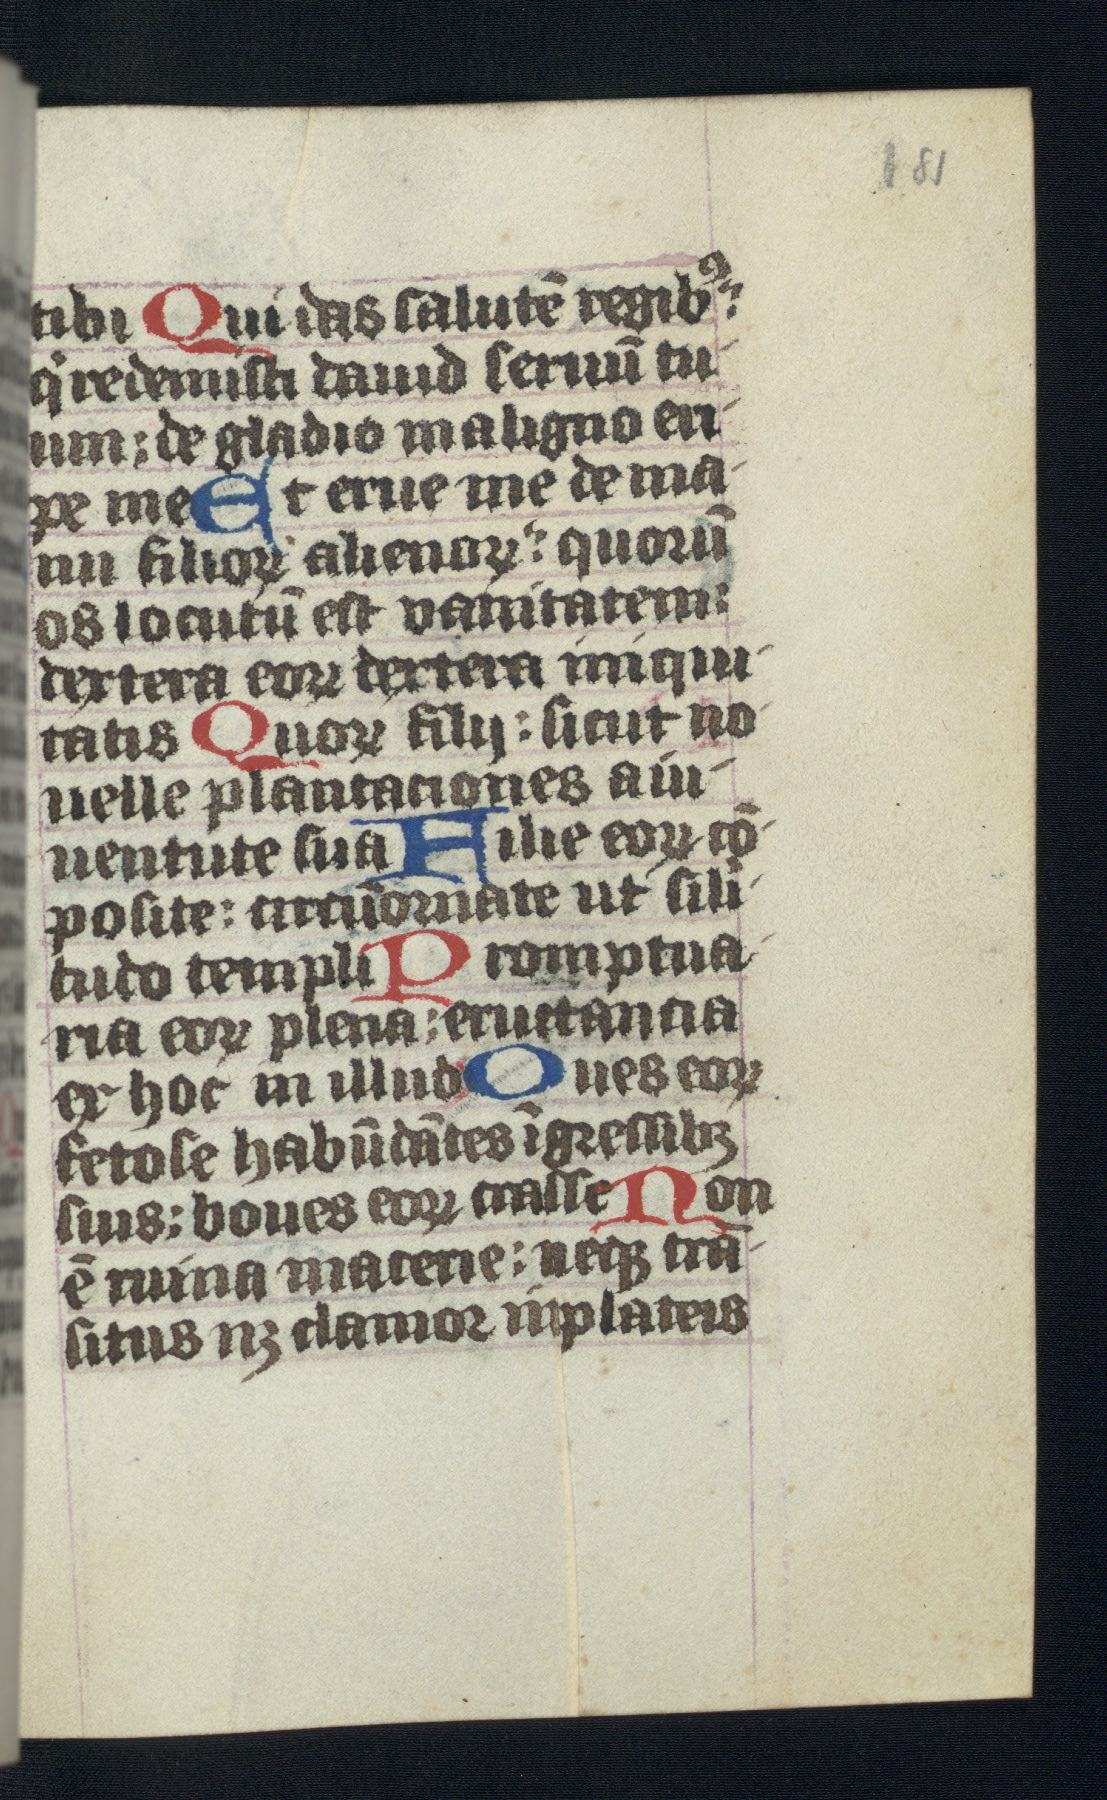 181
tibi Qui das salutē regibꝰ:
qͥ redemisti dauid seruū tu-
um: de gladio maligno eri-
pe me Et erue me de ma-
nu filioꝝ alienoꝝ: quorū
os locutū est vanitatem:
dextera eoꝝ dextera iniqui-
tatis Quoꝝ filij: sicut no-
uelle plantaciones a iu-
uentute sua Filie eoꝝ cō-
posite: circūornate ut sili-
tudo templi Promptua-
ria eoꝝ plena: eructancia
ex hoc in illud Oues eoꝝ
fetose habūdātes īgressibꝫ
suis: boues eoꝝ crasse Non
ē ruina macerie: neqꝫ trā-
situs nꝫ clamor in plateis